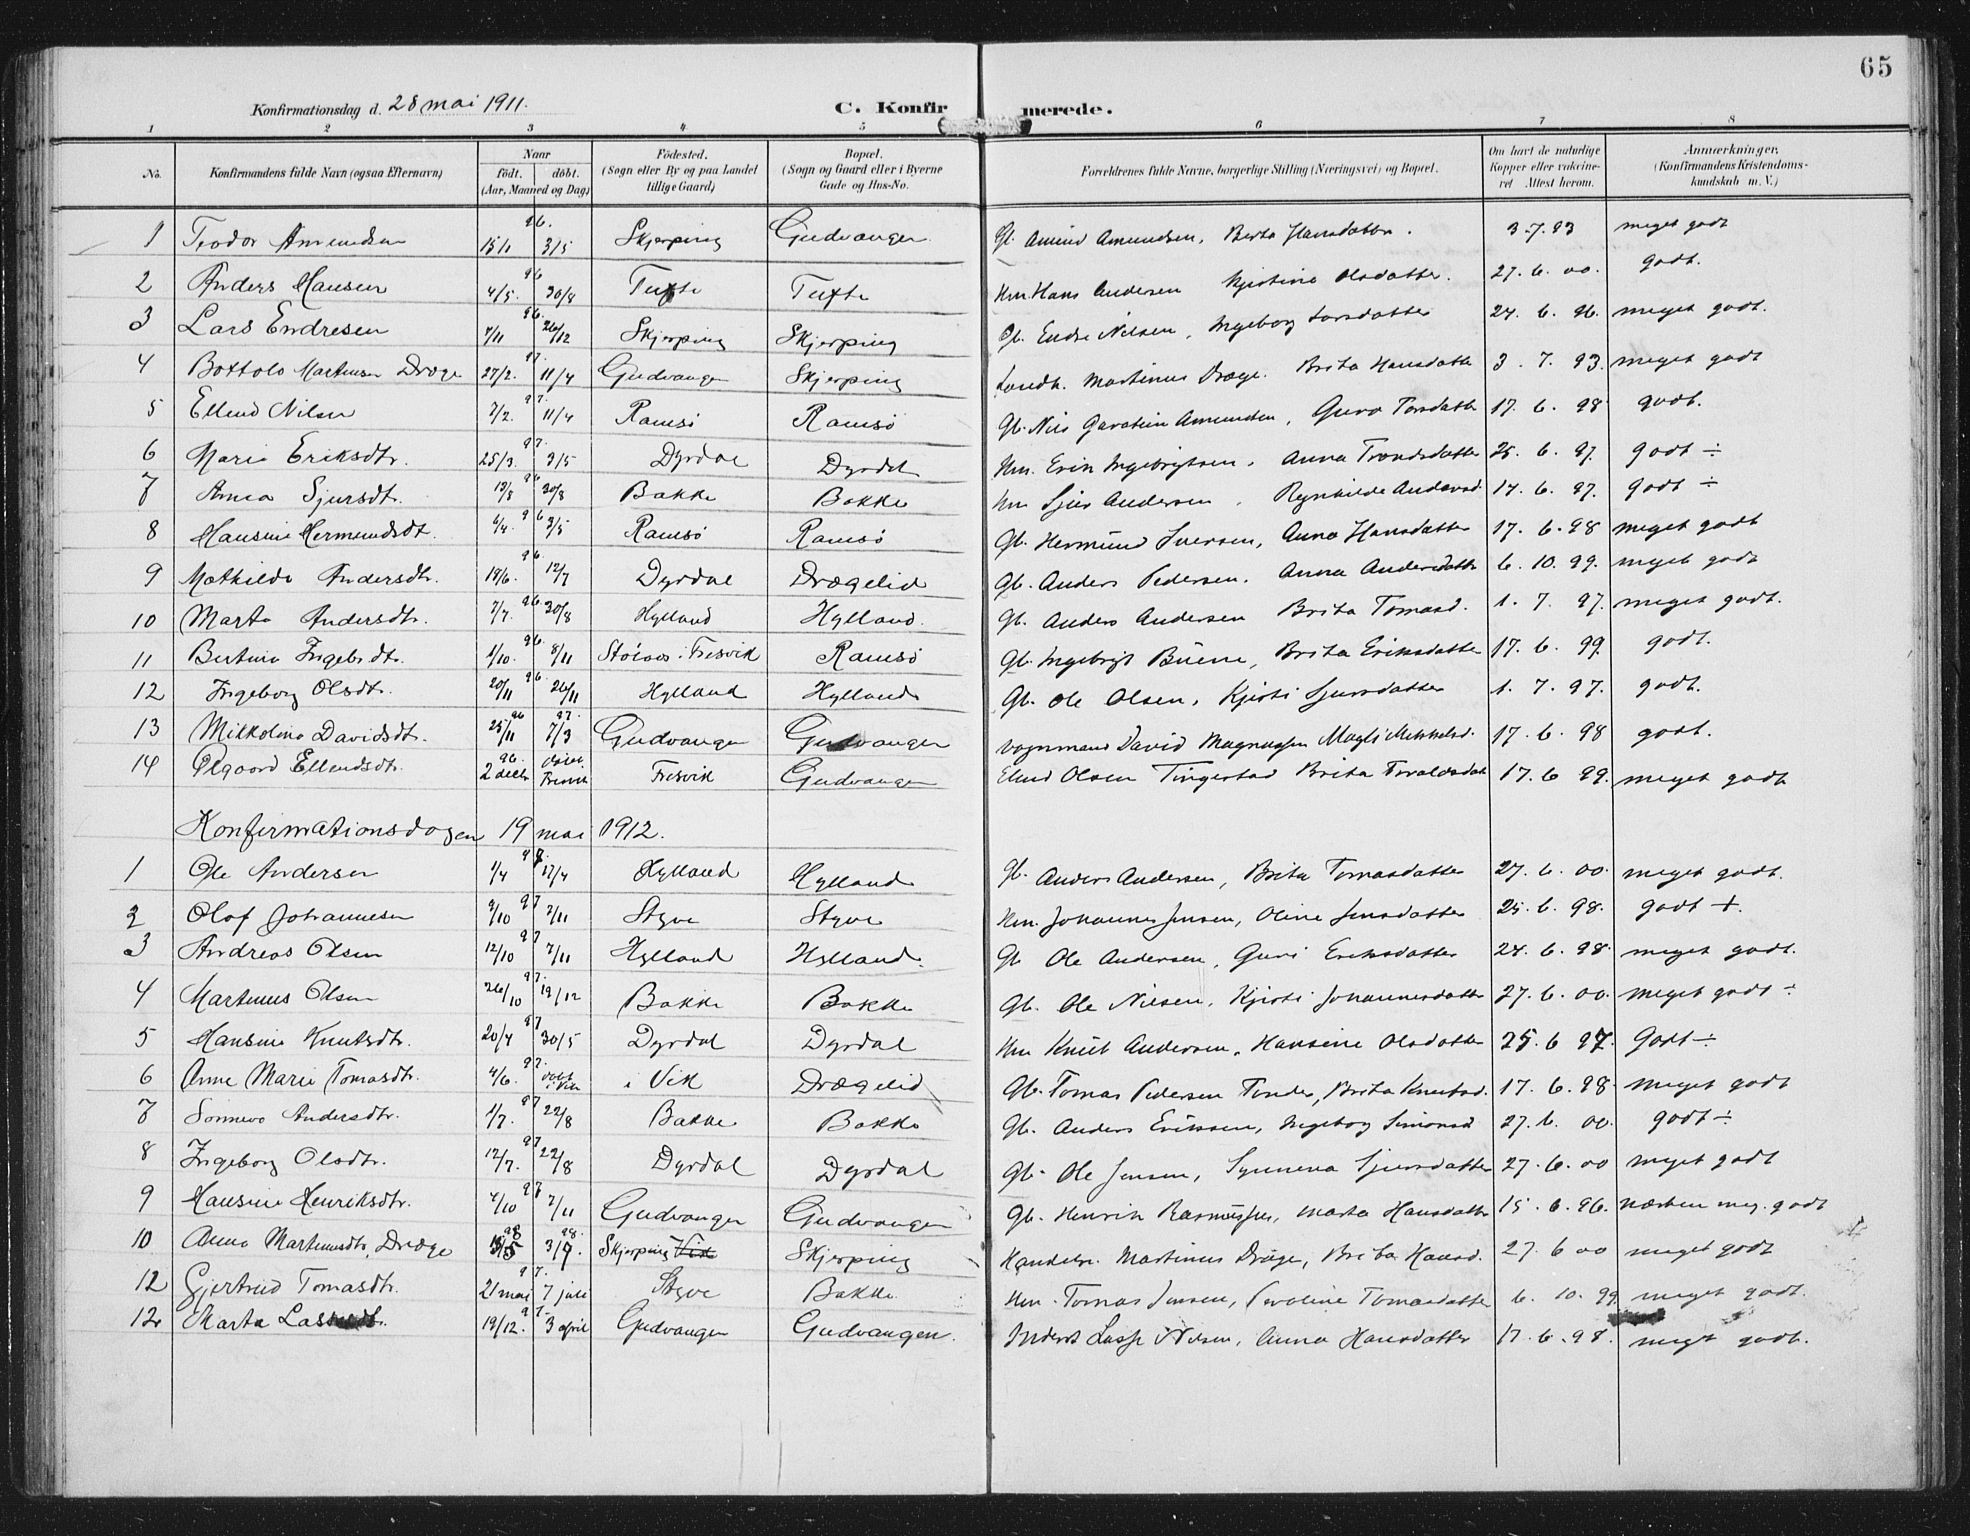 65
Konfirmationsdag d. 28 mai 1911. C. Konfirmerede.
1 2 3 4 5 6 7 8
No. Konfirmandens fulde Navn (ogsaa Efternavn) Naar født. døbt. (Aar, Maaned og Dag) Fødested. (Sogn eller By og paa Landet tillige Gaard) Bopæl. (Sogn og Gaard eller i Byerne Gade og Hus-No. Forældrenes fulde Navne, borgerlige Stilling (Næringsvei) og Bopæl. Om havt de naturlige Kopper eller vakcineret Attest herom. Anmærkninger. (Konfirmandens Kristendomskundskab m. V.)
1 Teodor Amundsen 96. 15/1 3/5 Skjerping Gudvangen Gb. Amund Amundsen, Berta Hansdatter. 3.7.93 meget godt
2 Anders Hansen 96 4/5. 30/8 Tufte Tufte Hm. Hans Andersen Kjistina Olsdatter. 27. 6. 00. godt.
3 Lars Endresen 96. 7/11 26/12 Skjerping Skjerping Gb. Endre Nilsen, Ingeborg Larsdatter 24. 6. 96. meget godt.
4 Bottolv Martinsen Dræge 97. 27/2. 11/4 Gudvangen Skjerping Landh. Martinus Dræge. Brita Hansdatter 3. 7. 93. meget godt
5 Ellend Nilsen 97. 7/2. 11/4 Ramsø Ramsø Gb. Nils Amundsen, Guro Torsdatter 17. 6. 98 godt.
6 Marie Eriksdtr. 97. 25/3. 3/5 Dyrdal Dyrdal Hm. Erik Ingebrigtsen. Anna Trondsdatter 25. 6. 97. godt ÷
7 Anna Sjursdt. 96 19/8 30/8 Bakke Bakke Hm Sjur Andersen. Ragnhilde Andersd. 17. 6. 97. godt ÷
8 Hansine Hermundsdt. 96 6/4. 3/5 Ramsø Ramsø Gb. Hermund Iversen, Anna Hansdatter 17. 6. 98 meget godt
9 Mathilde Andersdtr. 96. 18/6. 12/7 Dyrdal Drægelid Gb. Anders Pedersen. Anna Andersdattr 6. 10. 99. meget godt
10 Marta Andersdtr. 96 7/7. 30/8 Hylland Hylland. Gb. Anders Andersen Brita Tomasd. 1. 7. 97. meget godt.
11 Bertina Ingebr.dtr. 96. 1/10. 8/11 i Fresvik Ramsø Gb. Ingebrigt Buene, Brita Eriksdatter 17. 6. 99. godt.
12 Ingeborg Olsdtr. 96. 20/11 26/11 Hylland Hylland Gb. Ole Olsen, Kjisti Sjursdatter 1. 7. 97. godt.
13 Milkoline Davidsdt. 96 25/11 97. 7/3 Gudvangen Gudvangen vognmand David Magnussen Magli Mikkelsd. 17. 6. 98 godt.
14 Olgaard Ellendsdt. 96. 2 decbr Fresvik Fresvik Gudvangen Ellend Olsen Tingestad Brita Torvaldsdat 17. 6 99. meget godt
Konfirmationsdagen 19 mai 1912.
1 Ole Andersen 97. 1/4 17/4 Hylland Hylland Gb. Anders Andersen, Brita Tomasdatter 27. 6. 00. meget godt.
2 Olaf Johannesen 97 9/10 7/11 Styve Styve Hm. Johannes Jensen, Oline Jensdatter 25. 6. 98. godt +.
3 Andreas Olsen 97 12/10 7/11 Hylland Hylland. Gb Ole Andersen, Guri Eriksdatter 24. 6. 98. meget godt.
4 Martinus Olsen 97. 26/10 19/12 Bakke Bakke Gb. Ole Nilsen. Kjisti Johannesdatter 27. 6. 00. meget godt ÷
5 Hansine Knutsdtr. 97 20/4 30/5 Dyrdal Dyrdal Hm Knut Andersen. Hansine Olsdatter 25. 6 97. Godt ÷
6 Anne Marie Tomasdtr. 97. 4/6. døbt i Vik i Vik Drægelid Gb. Tomas Pedersen Tonder, Brita Knutsd. 17. 6. 98. meget godt
7 Sønneva Andersdtr. 97 1/7. 22/8 Bakke Bakke Gb. Anders Eriksen, Ingeborg Simonsd 27. 6. 00. godt ÷
8 Ingeborg Olsdtr. 97 12/7. 22/8 Dyrdal Dyrdal Gb. Ole Jensen, Synneva Sjursdatter 27. 6. 00 meget godt
9 Hansine Henriksdtr. 97 4/10 7/11 Gudvangen Gudvangen Gb. Henrik Rasmussen, Marta Hansdattr 15. 6. 96. næsten meg. godt
10 Anna Martinusdtr. Dræge 98 3/5 98. 3/7. Skjerping Vik Skjerping Handelsm. Martinus Dræge, Brita Hansd. 27. 6 00 meget godt
12 Gjertrud Tomasdtr. 97. 21 mai 7 juli Styve Bakke Hm. Tomas Jensen, Karoline Tomasdatter 6. 10. 99 meget godt.
12 Marta 97. 19/12. 3 april Gudvangen Gudvangen. Inderst Lasse Nilsen, Anna Hansdatter 17. 6. 98. meget godt.